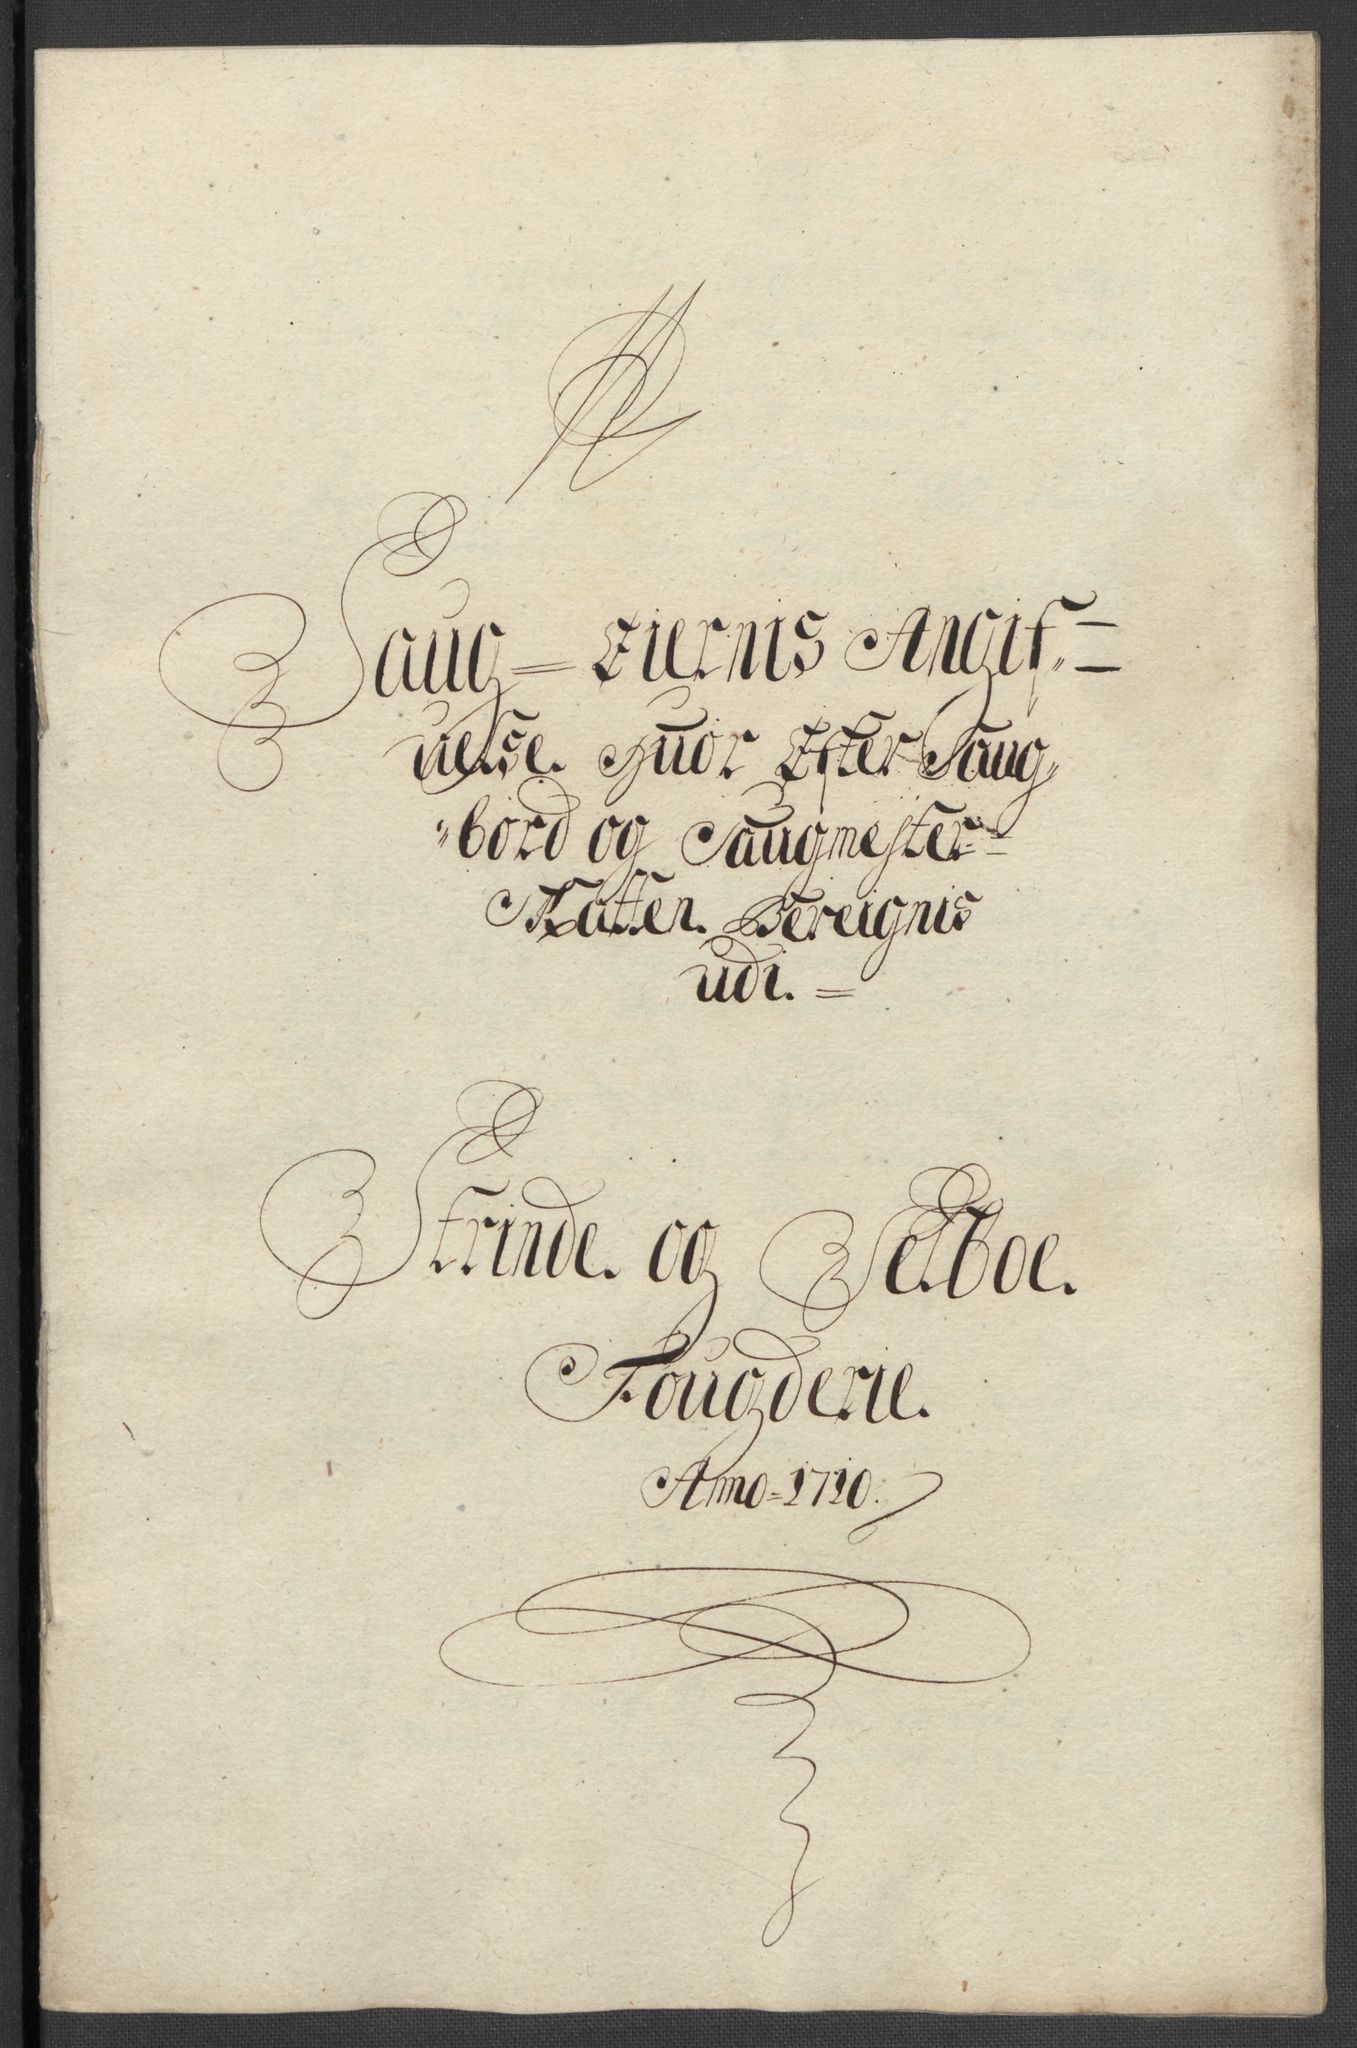 Saug= Eiernis Angif=
uelse. Huor Efter Saug=
=bord og Saugmester=
Skatten. Bereignis
udi. =
Strinde. og Selboe.
Fougderie.
Anno=1710.